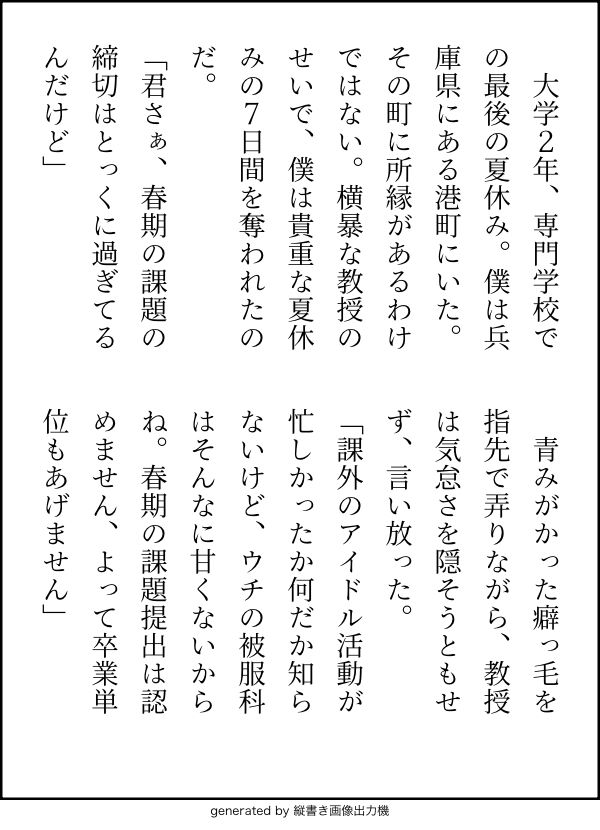 大学２年、専門学校で
の最後の夏休み。僕は兵
庫県にある港町にいた。
その町に所縁があるわけ
ではない。横暴な教授の
せいで、僕は貴重な夏休
みの７日間を奪われたの
だ。
「君さぁ、春期の課題の
締切はとっくに過ぎてる
んだけど」
　青みがかった癖っ毛を
指先で弄りながら、教授
は気怠さを隠そうともせ
ず、言い放った。
「課外のアイドル活動が
忙しかったか何だか知ら
ないけど、ウチの被服科
はそんなに甘くないから
ね。春期の課題提出は認
めません、よって卒業単
位もあげません」
generated by 縦書き画像出力機